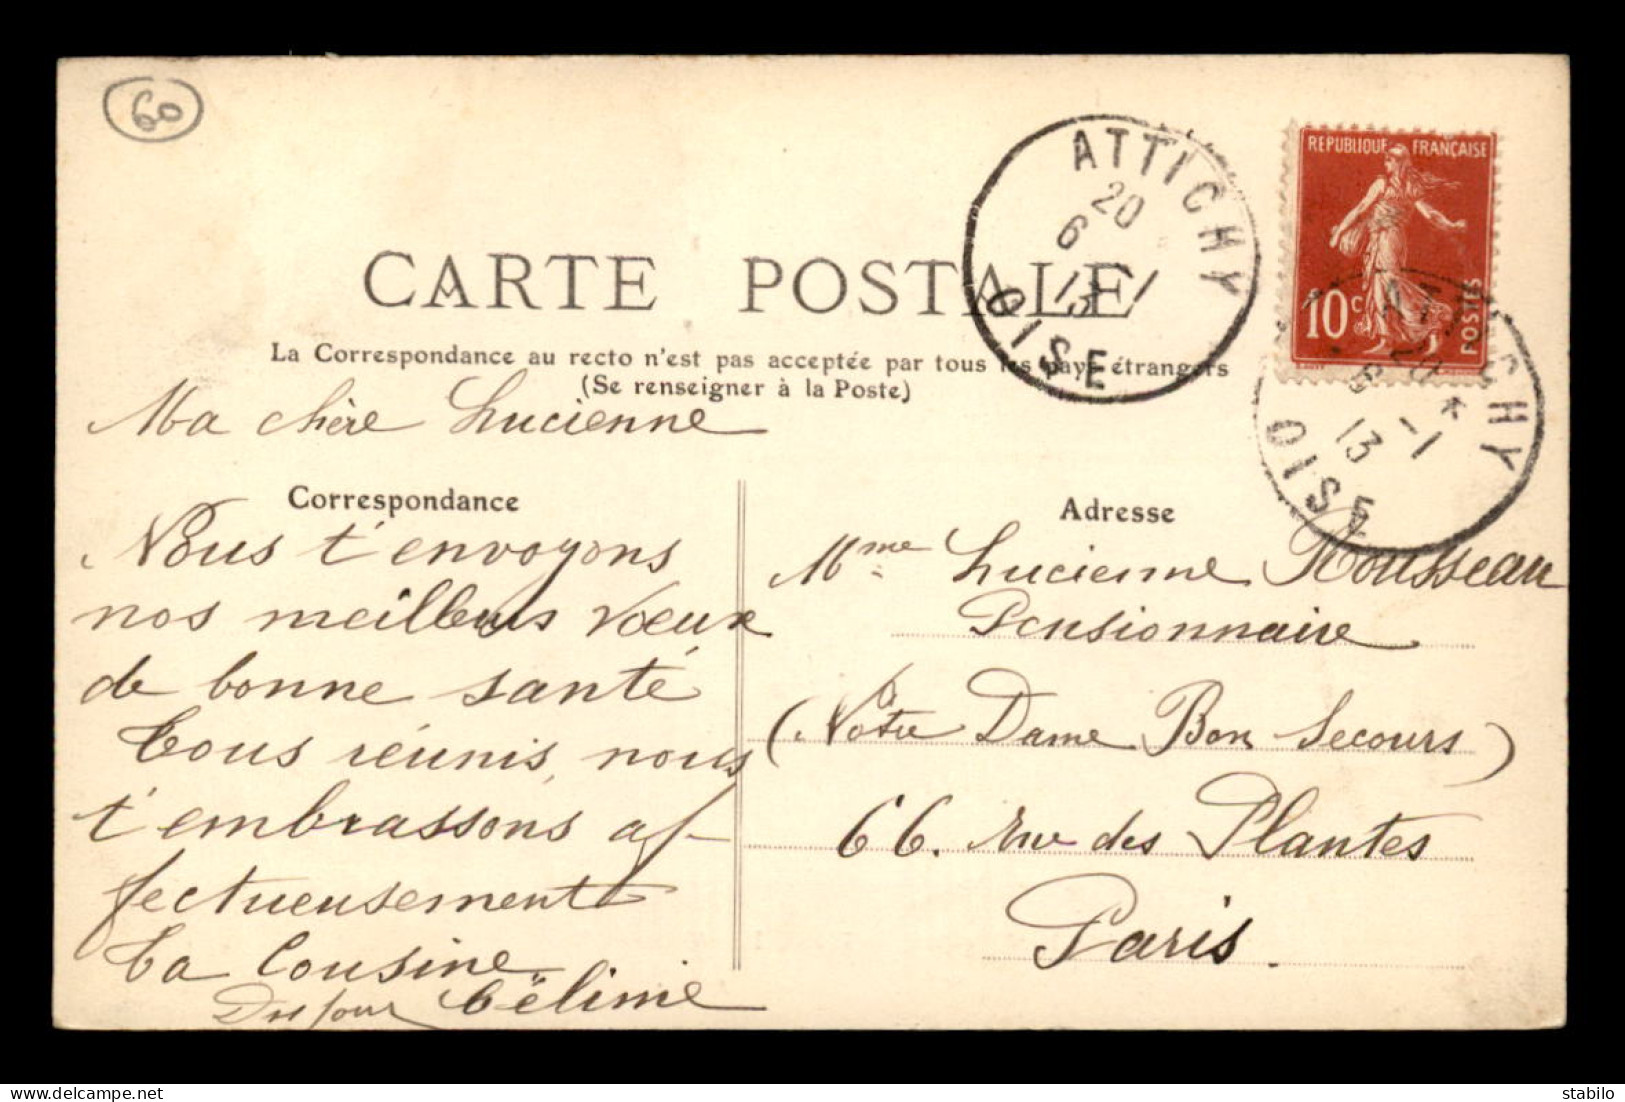 60
ATTICHY
20
6 -1
13
OISE
REPUBLIQUE FRANÇAISE
10c
POSTES
CARTE POSTALE
La Correspondance au recto n'est pas acceptée par tous les pays étrangers
(Se renseigner à la Poste)
ATTICHY
20
6 -1
13
OISE
Ma chère Lucienne
Correspondance
Nous t'envoyons
nos meilleurs vœux
de bonne santé
Tous réunis, nous
t'embrassons af-
fectueusement
Ta Cousine
Dufour Céline
Adresse
Mme Lucienne Rousseau
Pensionnaire
(Notre Dame Bon Secours)
66. rue des Plantes
Paris.
delcampe.net
stabilo